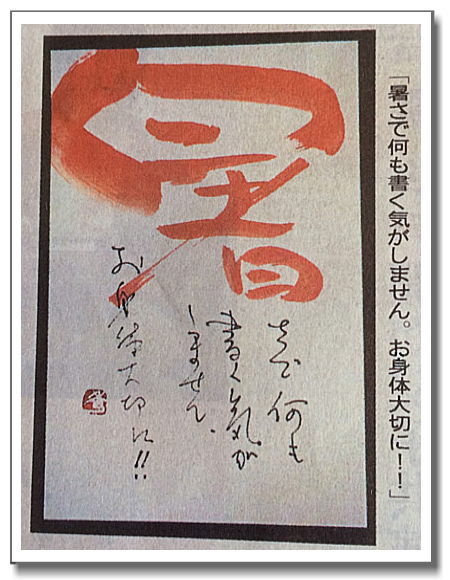 「暑さで何も書く気がしません。お身体大切に！！」
暑
さで何も
書く気が
しません、
お身体大切に!!